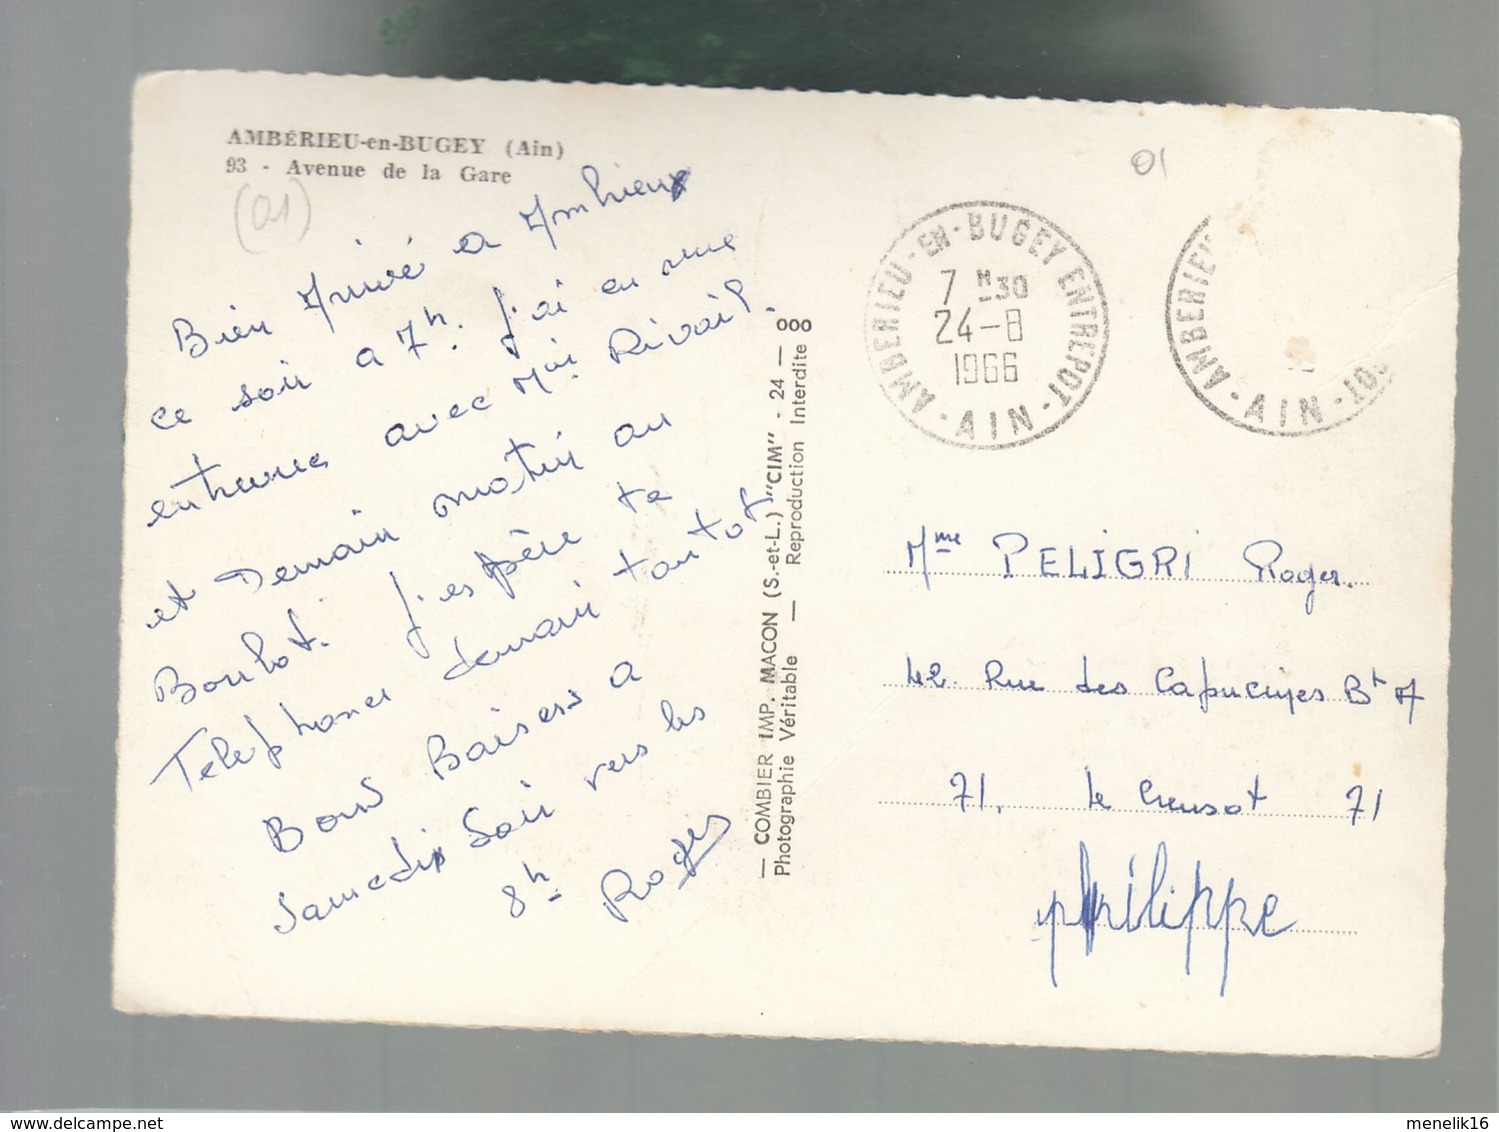 AMBÉRIEU-en-BUGEY (Ain)
93 - Avenue de la Gare
(01)
Bien Arrivé a Ambérieux
ce soir a 7h. J'ai eu une
entrevue avec Mr Rivail.
et Demain matin au
Boulot. J'espère te
Telephoner demain tantot
Bons Baisers a
Samedi Soir vers les
8h. Roger
— COMBIER IMP. MACON (S.-et-L.) "CIM" - 24 — 000
Photographie Véritable — Reproduction Interdite
01
AMBERIEU-EN-BUGEY ENTREPOT
7 H30
24-8
1966
· AIN ·
AMBERIEU
· AIN ·
Mme PELIGRI Roger.
42. Rue des Capucines Bt A
71. Le Creusot 71
philippe
menelik16
www.delcampe.net